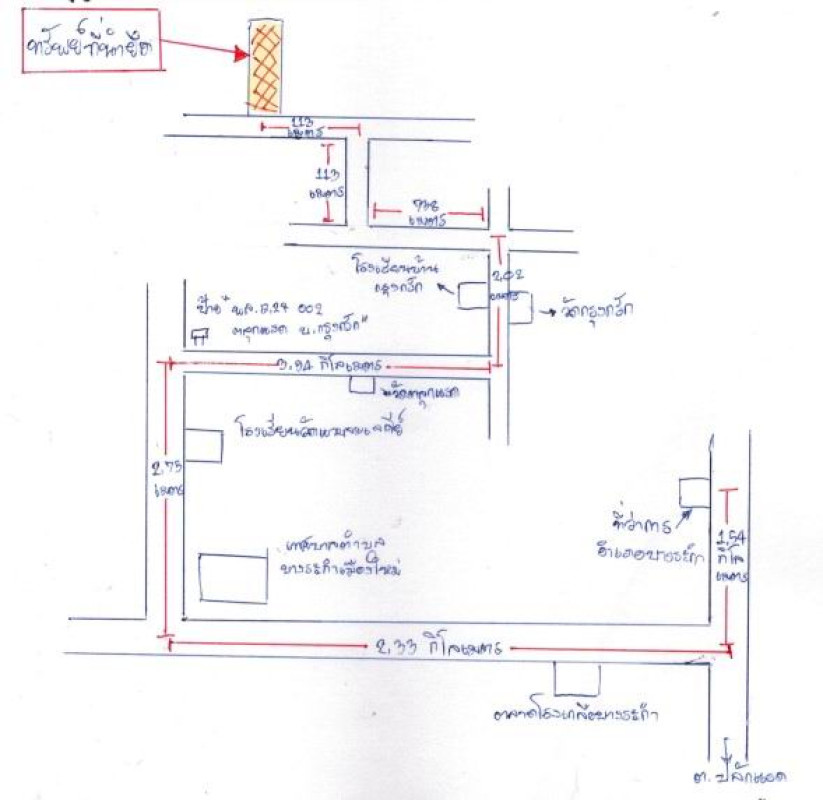 ทรัพย์ที่นำยึด
113
เมตร
113
เมตร
738
เมตร
โรงเรียนบ้าน
กรุงกรัก
202
เมตร
วัดกรุงกรัก
ป้าย "พล.ถ.24 002
บ.กรุงกรัก"
3.94 กิโลเมตร
โรงเรียนวัด
2.75
เมตร
เทศบาลตำบล
บางระกำเมืองใหม่
ที่ว่าการ
อำเภอบางระกำ
1.54
กิโล
เมตร
2.33 กิโลเมตร
ตลาดโรงเกลือบางระกำ
ต.ปลักแรด